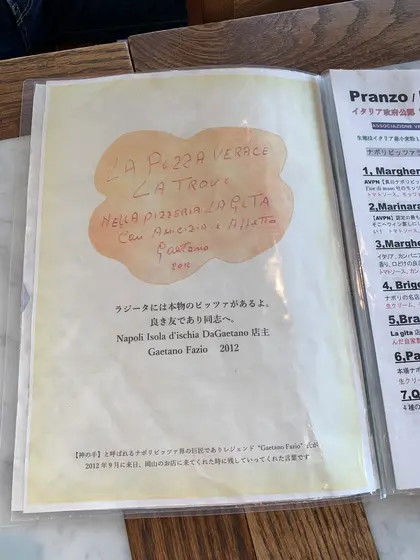 LA PIZZA VERACE
LA TROVI
NELLA PIZZERIA LA GITA
Con AMICIZIA e AFFETTO
Gaetano
ラジータには本物のピッツァがあるよ。
良き友であり同志へ。
Napoli Isola d'ischia DaGaetano 店主
Gaetano Fazio 2012
【神の手】と呼ばれるナポリピッツァ界の巨匠でありレジェンド "Gaetano Fazio" 氏が
2012年9月に来日、岡山のお店に来てくれた時に残していってくれた言葉です
Pranzo /
イタリア政府公認
ASSOCIAZIONE VE
生地はイタリア最小麦粉
ナポリピッツァ
1, Margher
2, Marinara
3, Marghe
4, Brige
5, Bra
La gita
6, Pa
本場ナポ
生クリー
7, Q
4種の